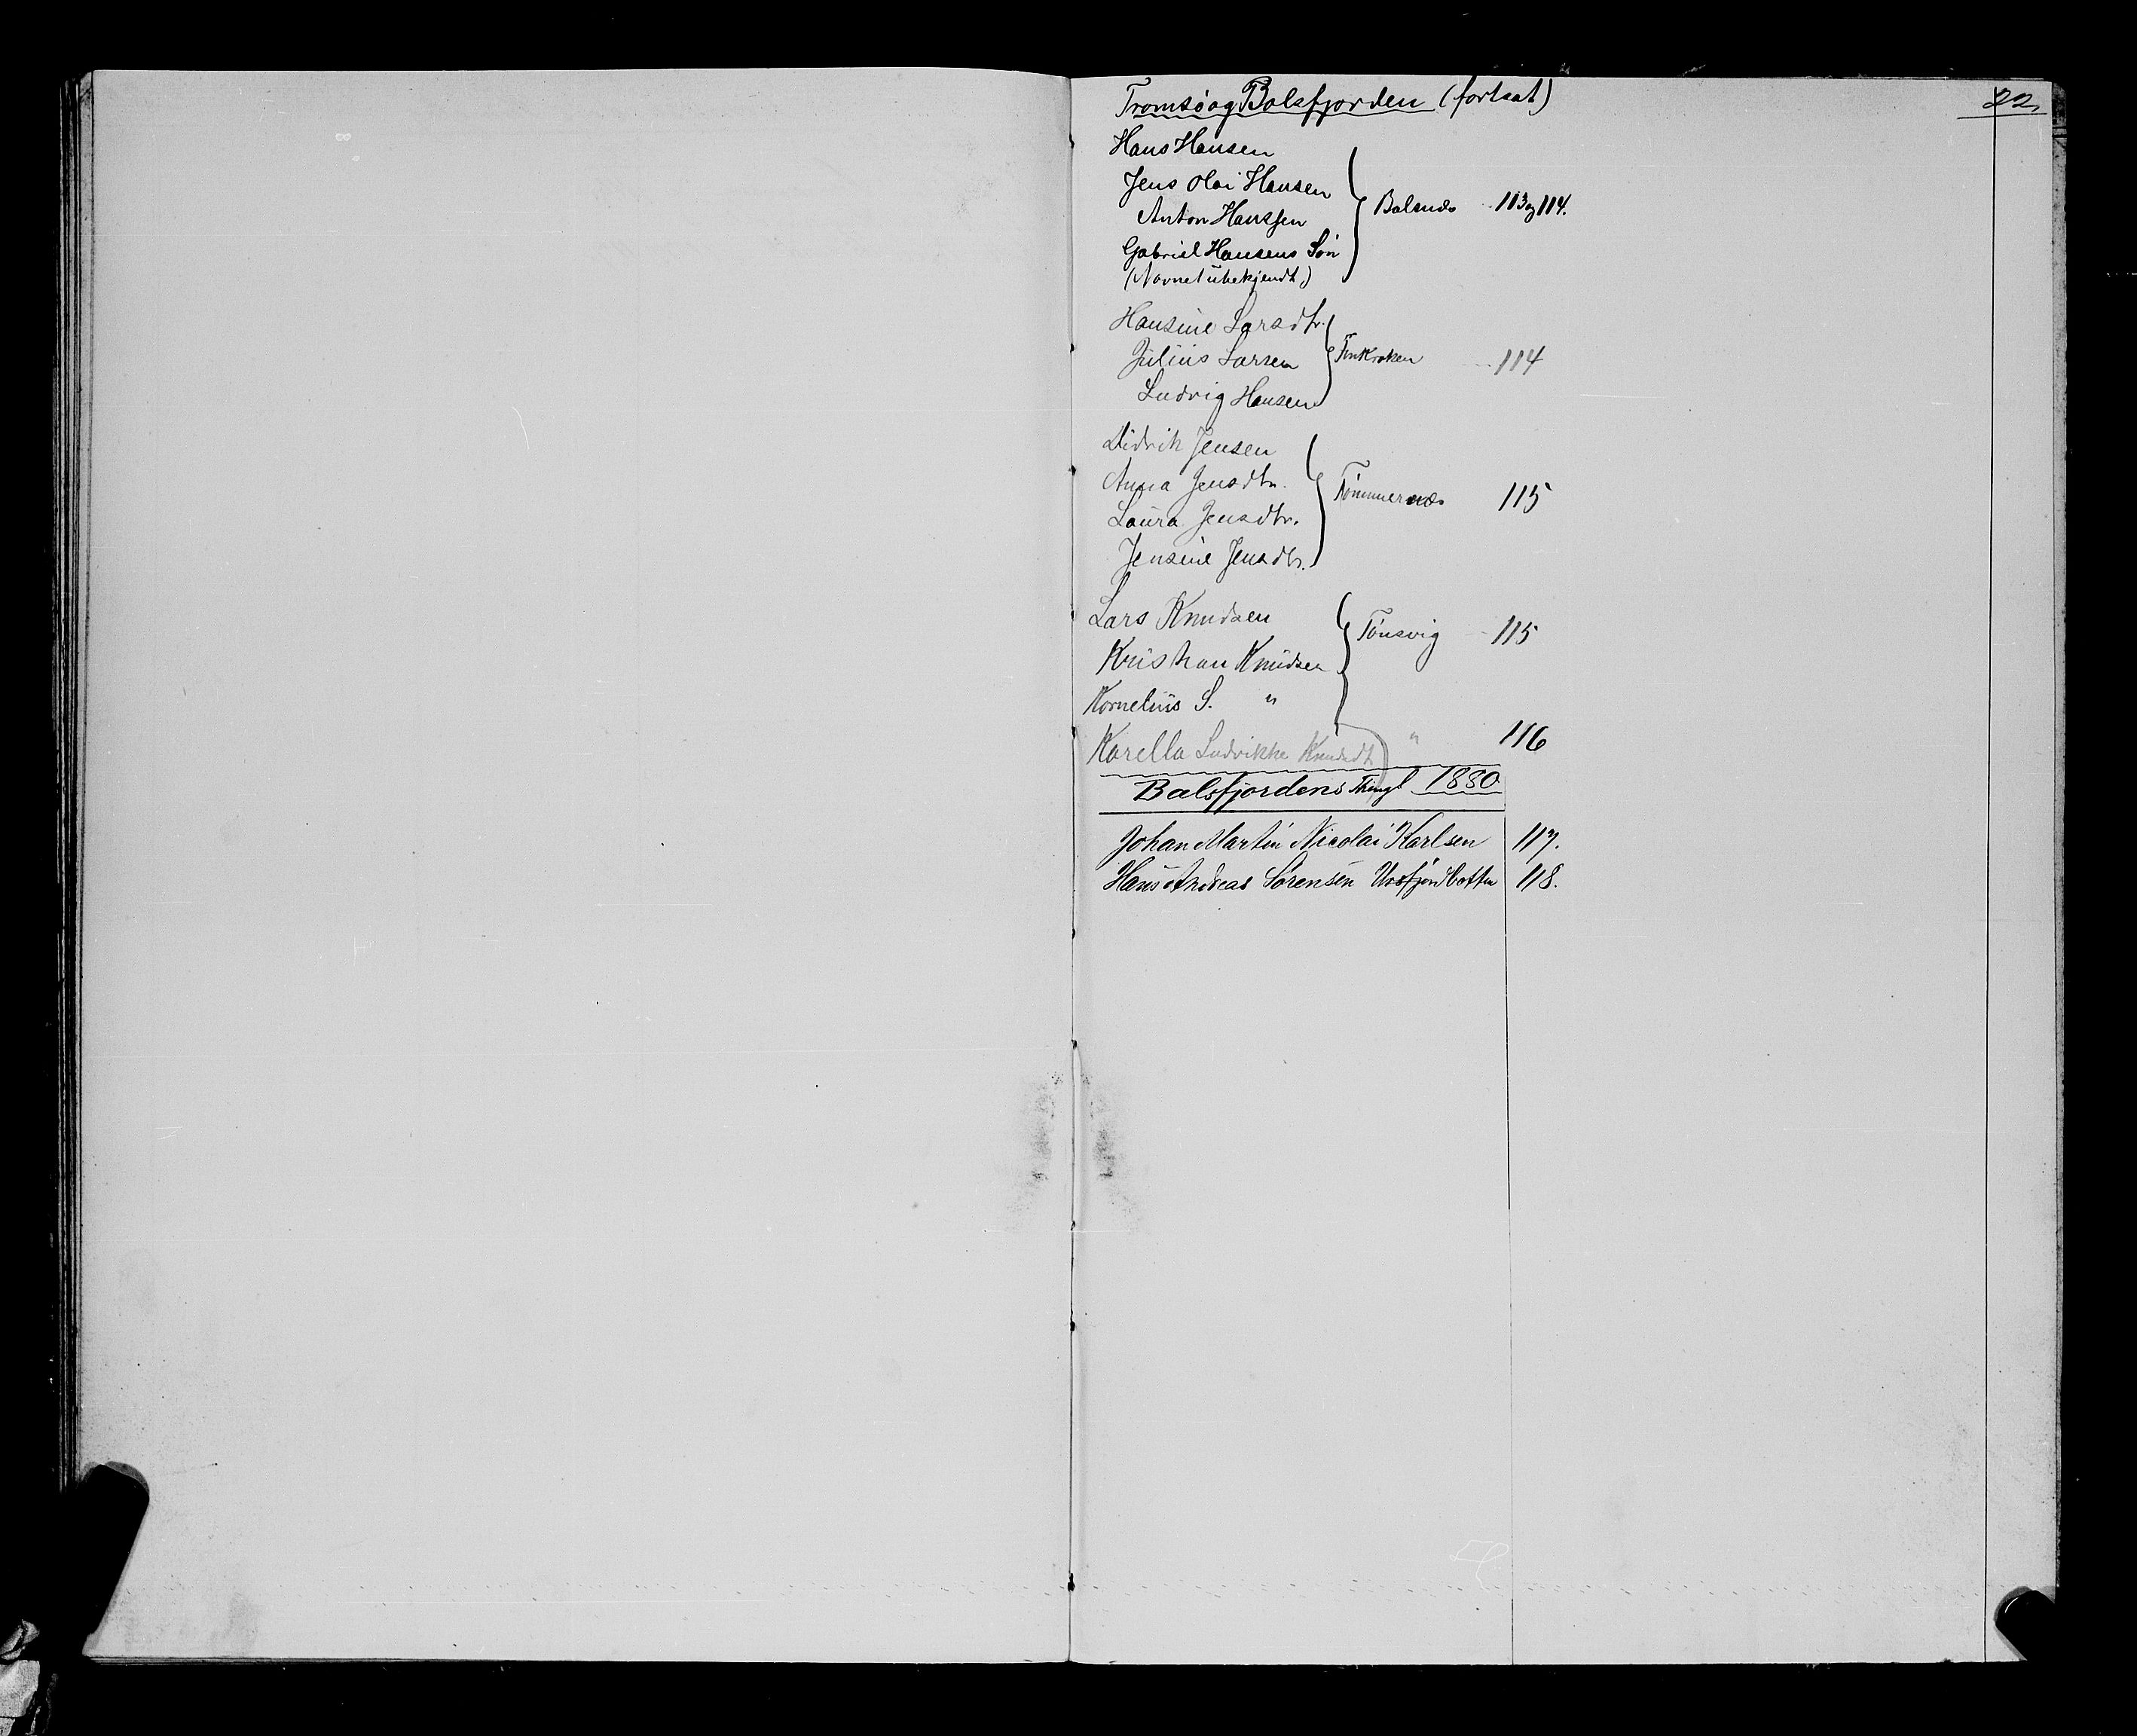 Tromsö og Balsfjorden (fortsat) 22,
Hans Hansen
Jens Olai Hansen
Anton Hanssen } Balsnæs 113 og 114.
Gabriel Hansens Sön
(Navnet ubekjendt)
Hansine Larsdtr.
Julius Larsen } Tonkroken 114
Ludvig Hansen
Didrik Jensen
Anna Jensdtr.
Laura Jensdtr. } Tömmernæs 115
Jensine Jensdtr.
Lars Knudsen
Kristian Knudsen } Tönsvig 115
Kornelius S. "
Karella Ludvikke Knudsdt } " 116
Balsfjordens Thingl 1880
Johan Martin Nicolai Karlsen 117.
Hans Andreas Sörensen Ursfjordbotten 118.